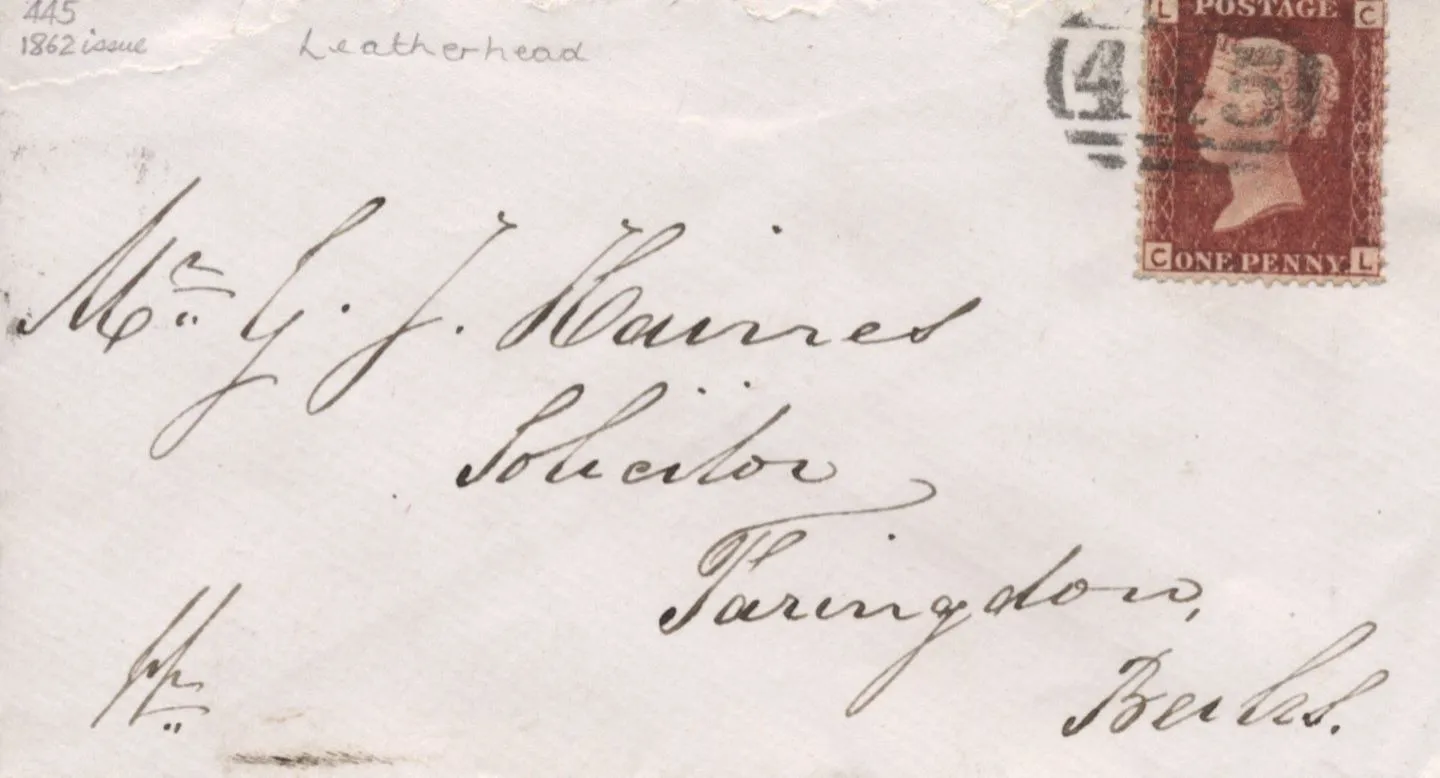 445
1862 issue
Leatherhead
L POSTAGE C
4 5
C ONE PENNY. L
Mr. G. J. Haines
Solicitor
Faringdon,
Berks.